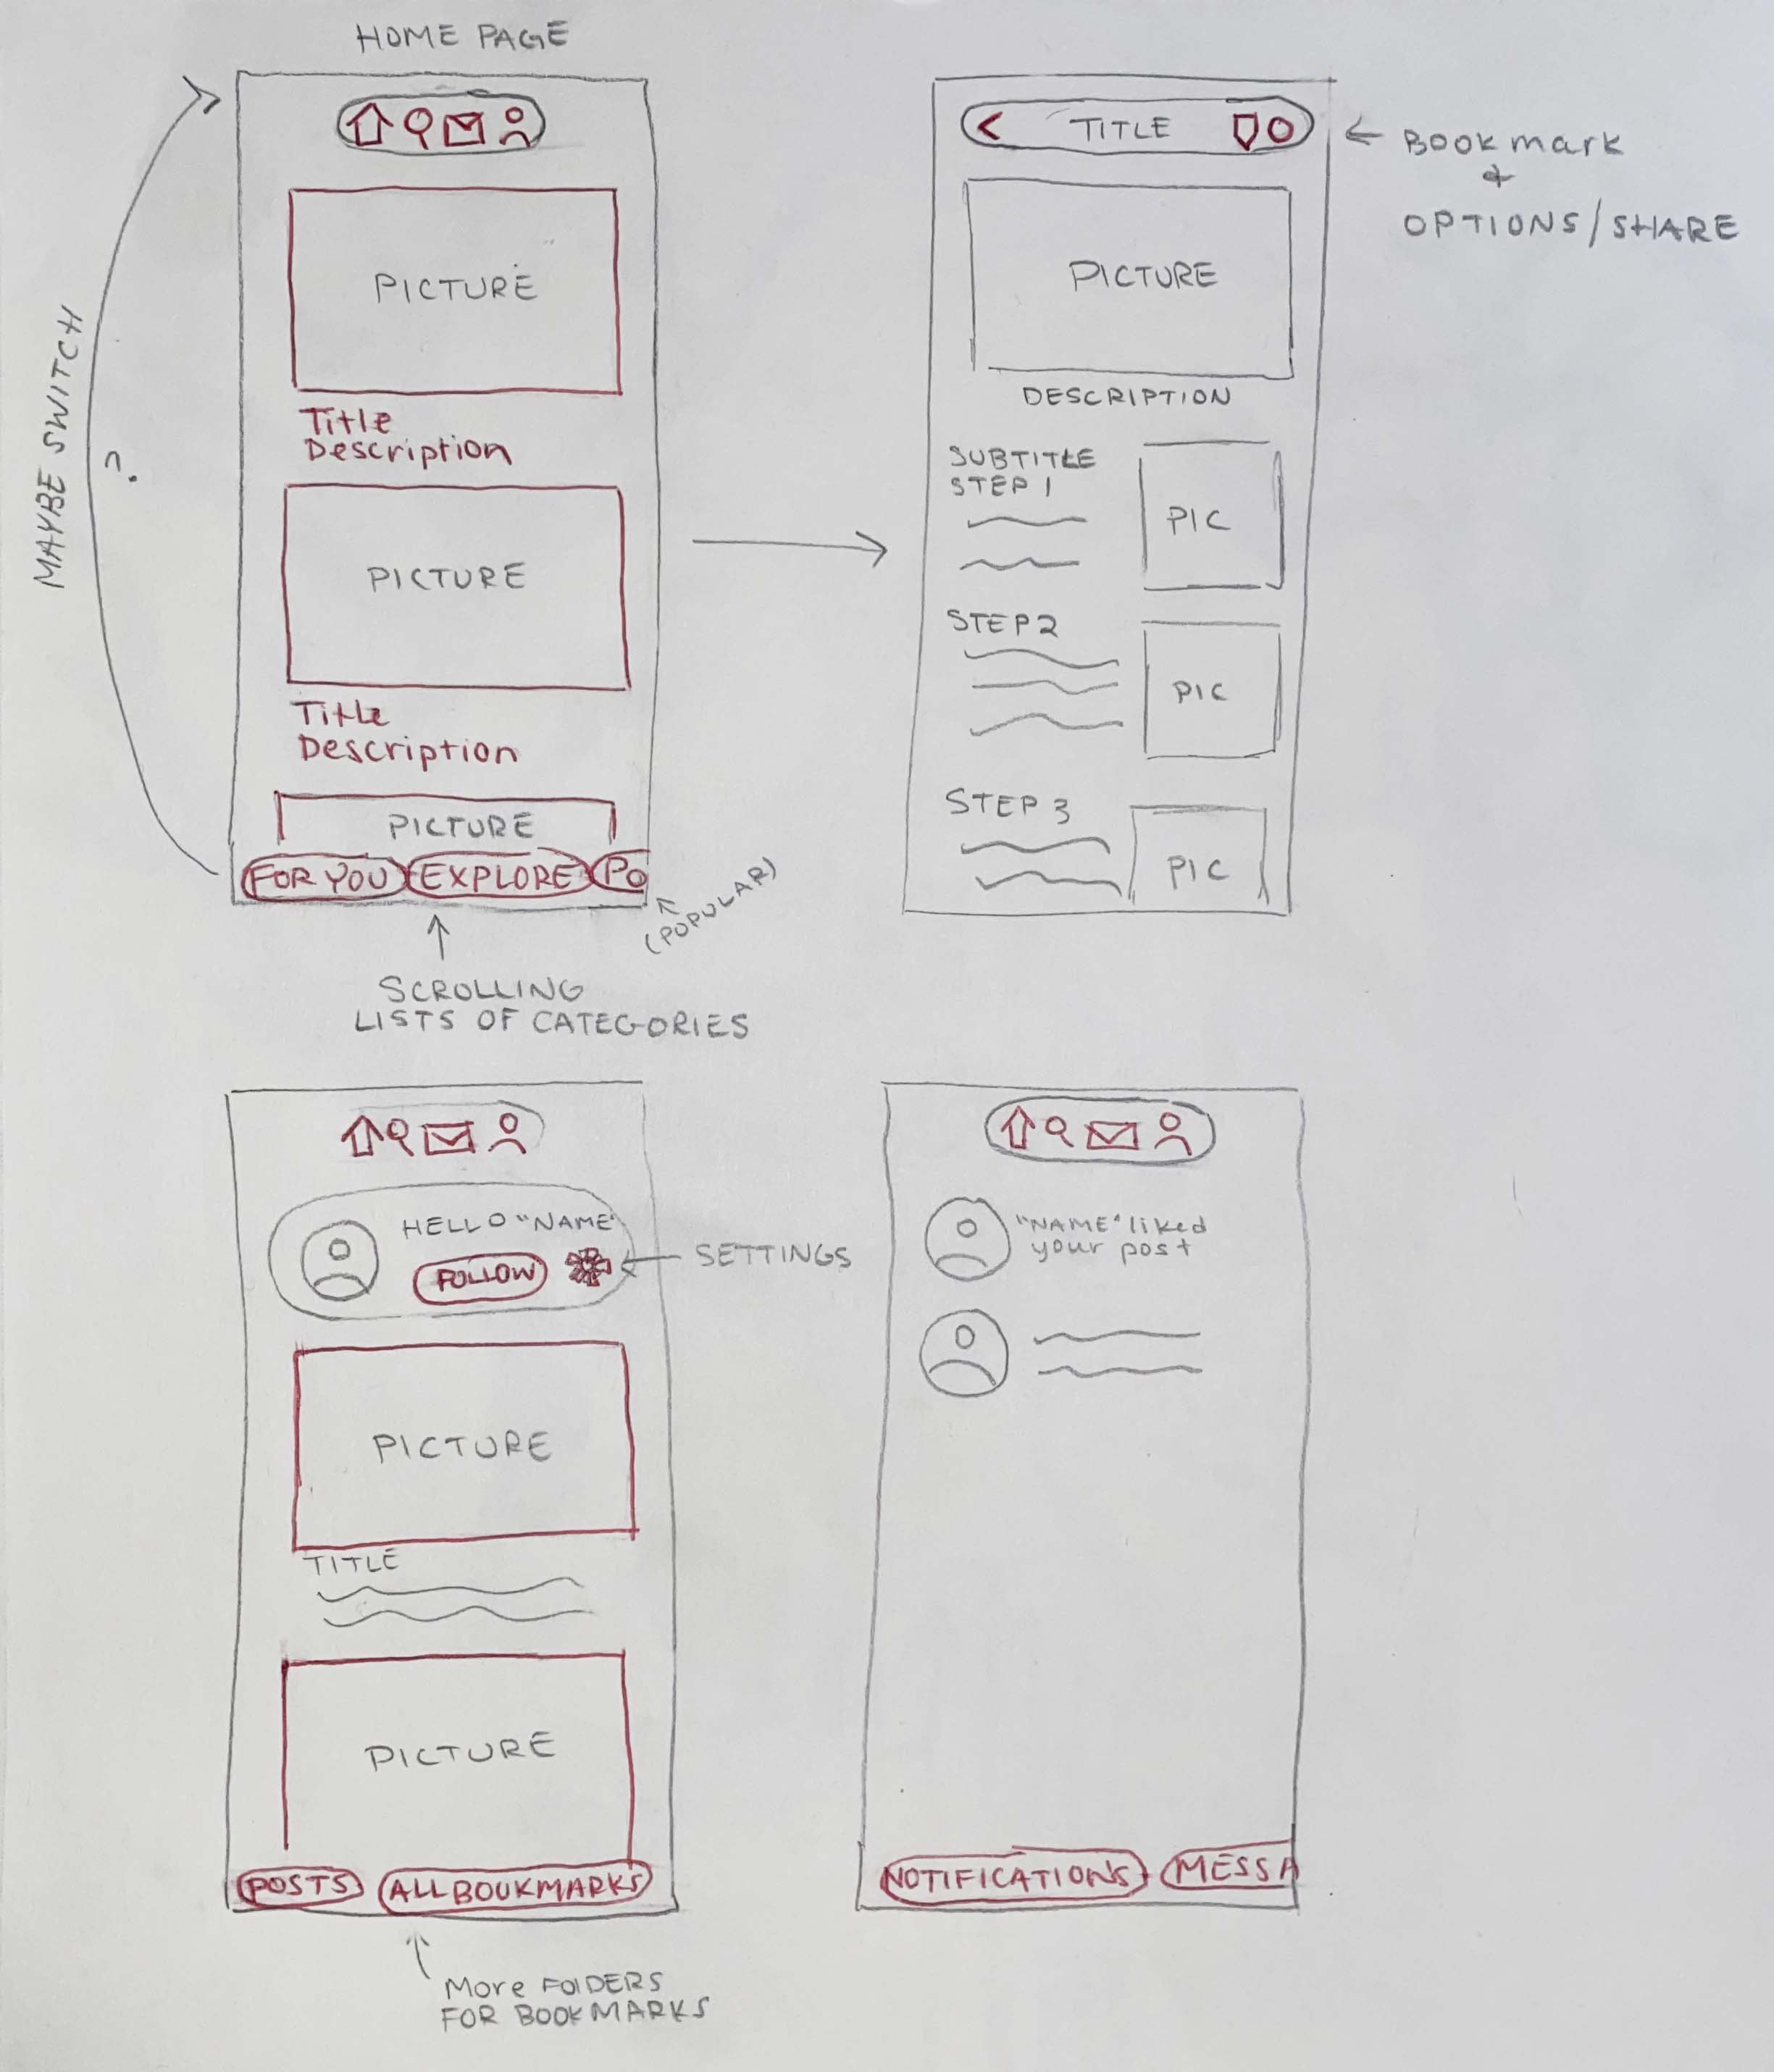 HOME PAGE
PICTURE
Title
Description
PICTURE
Title
Description
PICTURE
FOR YOU
EXPLORE
PO
(POPULAR)
MAYBE SWITCH
?
SCROLLING
LISTS OF CATEGORIES
TITLE
BOOKmark
+
OPTIONS/SHARE
PICTURE
DESCRIPTION
SUBTITLE
STEP 1
PIC
STEP 2
PIC
STEP 3
PIC
HELLO "NAME"
FOLLOW
SETTINGS
PICTURE
TITLE
PICTURE
POSTS
ALL BOOKMARKS
More FOLDERS
FOR BOOKMARKS
"NAME" liked
your post
NOTIFICATIONS
MESSA